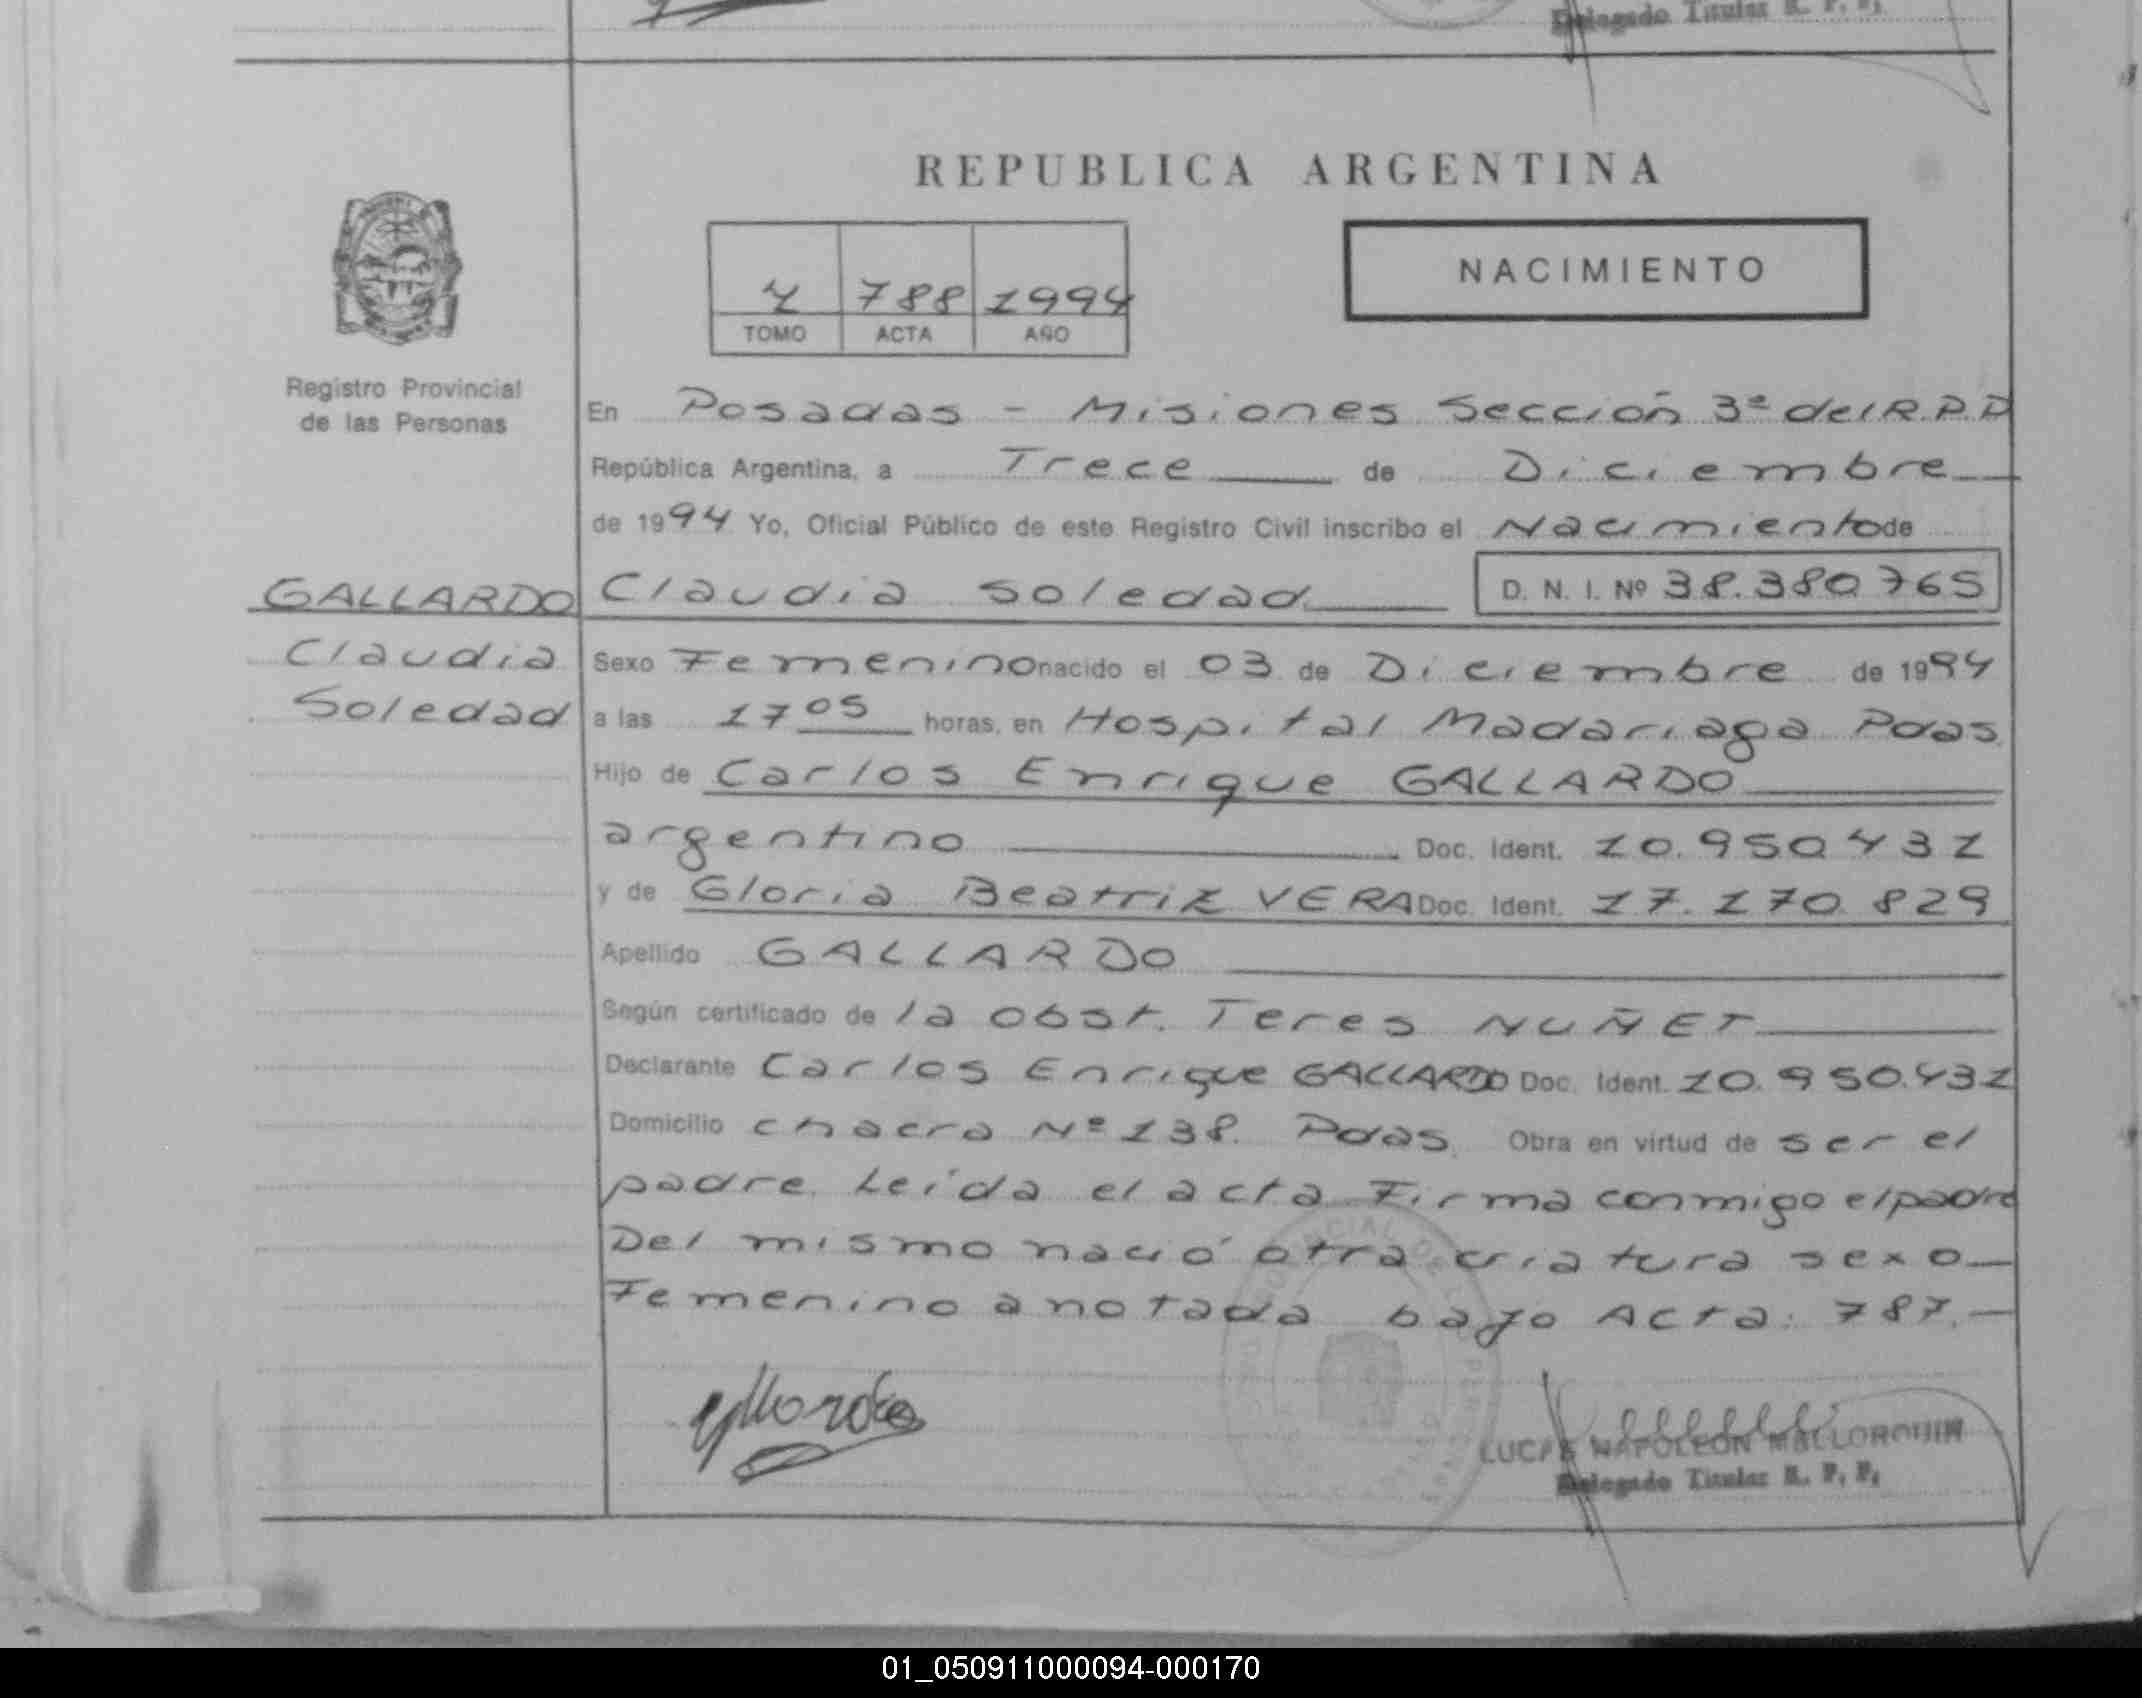 Delegado Titular R. P. P.
REPUBLICA ARGENTINA
NACIMIENTO
788 1994
TOMO ACTA AÑO
Registro Provincial
de las Personas
En Posadas - Misiones Sección 3ª del R.P.P
República Argentina, a Trece de Diciembre
de 1994 Yo, Oficial Público de este Registro Civil inscribo el Nacimiento de
GALLARDO Claudia Soledad D. N. I. Nº 38.380765
Claudia
Soledad
Sexo Femenino nacido el 03 de Diciembre de 1994
a las 17 05 horas, en Hospital Madariaga Pdas.
Hijo de Carlos Enrique GALLARDO
argentino Doc. Ident. 10.950431
y de Gloria Beatriz VERA Doc. Ident. 17.170829
Apellido GALLARDO
Según certificado de la obst. Teres NUÑET
Declarante Carlos Enrique GALLARDO Doc. Ident. 10.950.431
Domicilio chacra Nº 138. Pdas. Obra en virtud de ser el
padre. Leída el acta Firma conmigo el padre
Del mismo nació otra criatura sexo
Femenino anotada bajo Acta: 787.-
Gallardo
LUCAS NAPOLEON MALLORQUIN
Delegado Titular R. P. P.
01_050911000094-000170